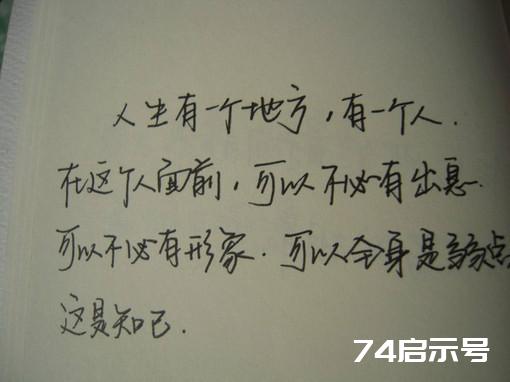 人生有一个地方,有一个人.
在这个人面前,可以不必有出息.
可以不必有形象.可以全身是弱点
这是知己.
74启示号